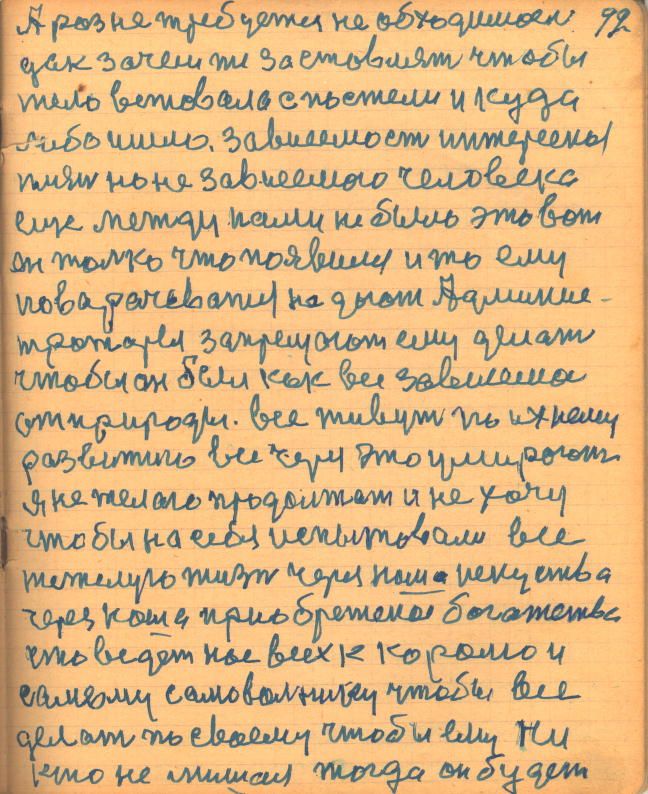 А раз не требуется не обходимости 92
дак зачем же заставлят чтобы
тело вставала с постели и куда
либо ишло. Зависемост интересны
но не зависемого человека
еще между нами не было это вот
он толко что появился и то ему
поварачеватся не дают Админис-
тратареи запрещают ему делат
чтобы он был как все зависемо
от природы. все живут по ихнему
развитию все через это умирают
я не желаю продолжат и не хочу
чтобы на себя испытовали все
тяжелую жизн через наша искуства
через наша приобретеной богатства
что ведет нас всех к королю и
самому самоволнику чтобы все
делат по своему чтобы ему Ни
кто не мишал тогда он будет